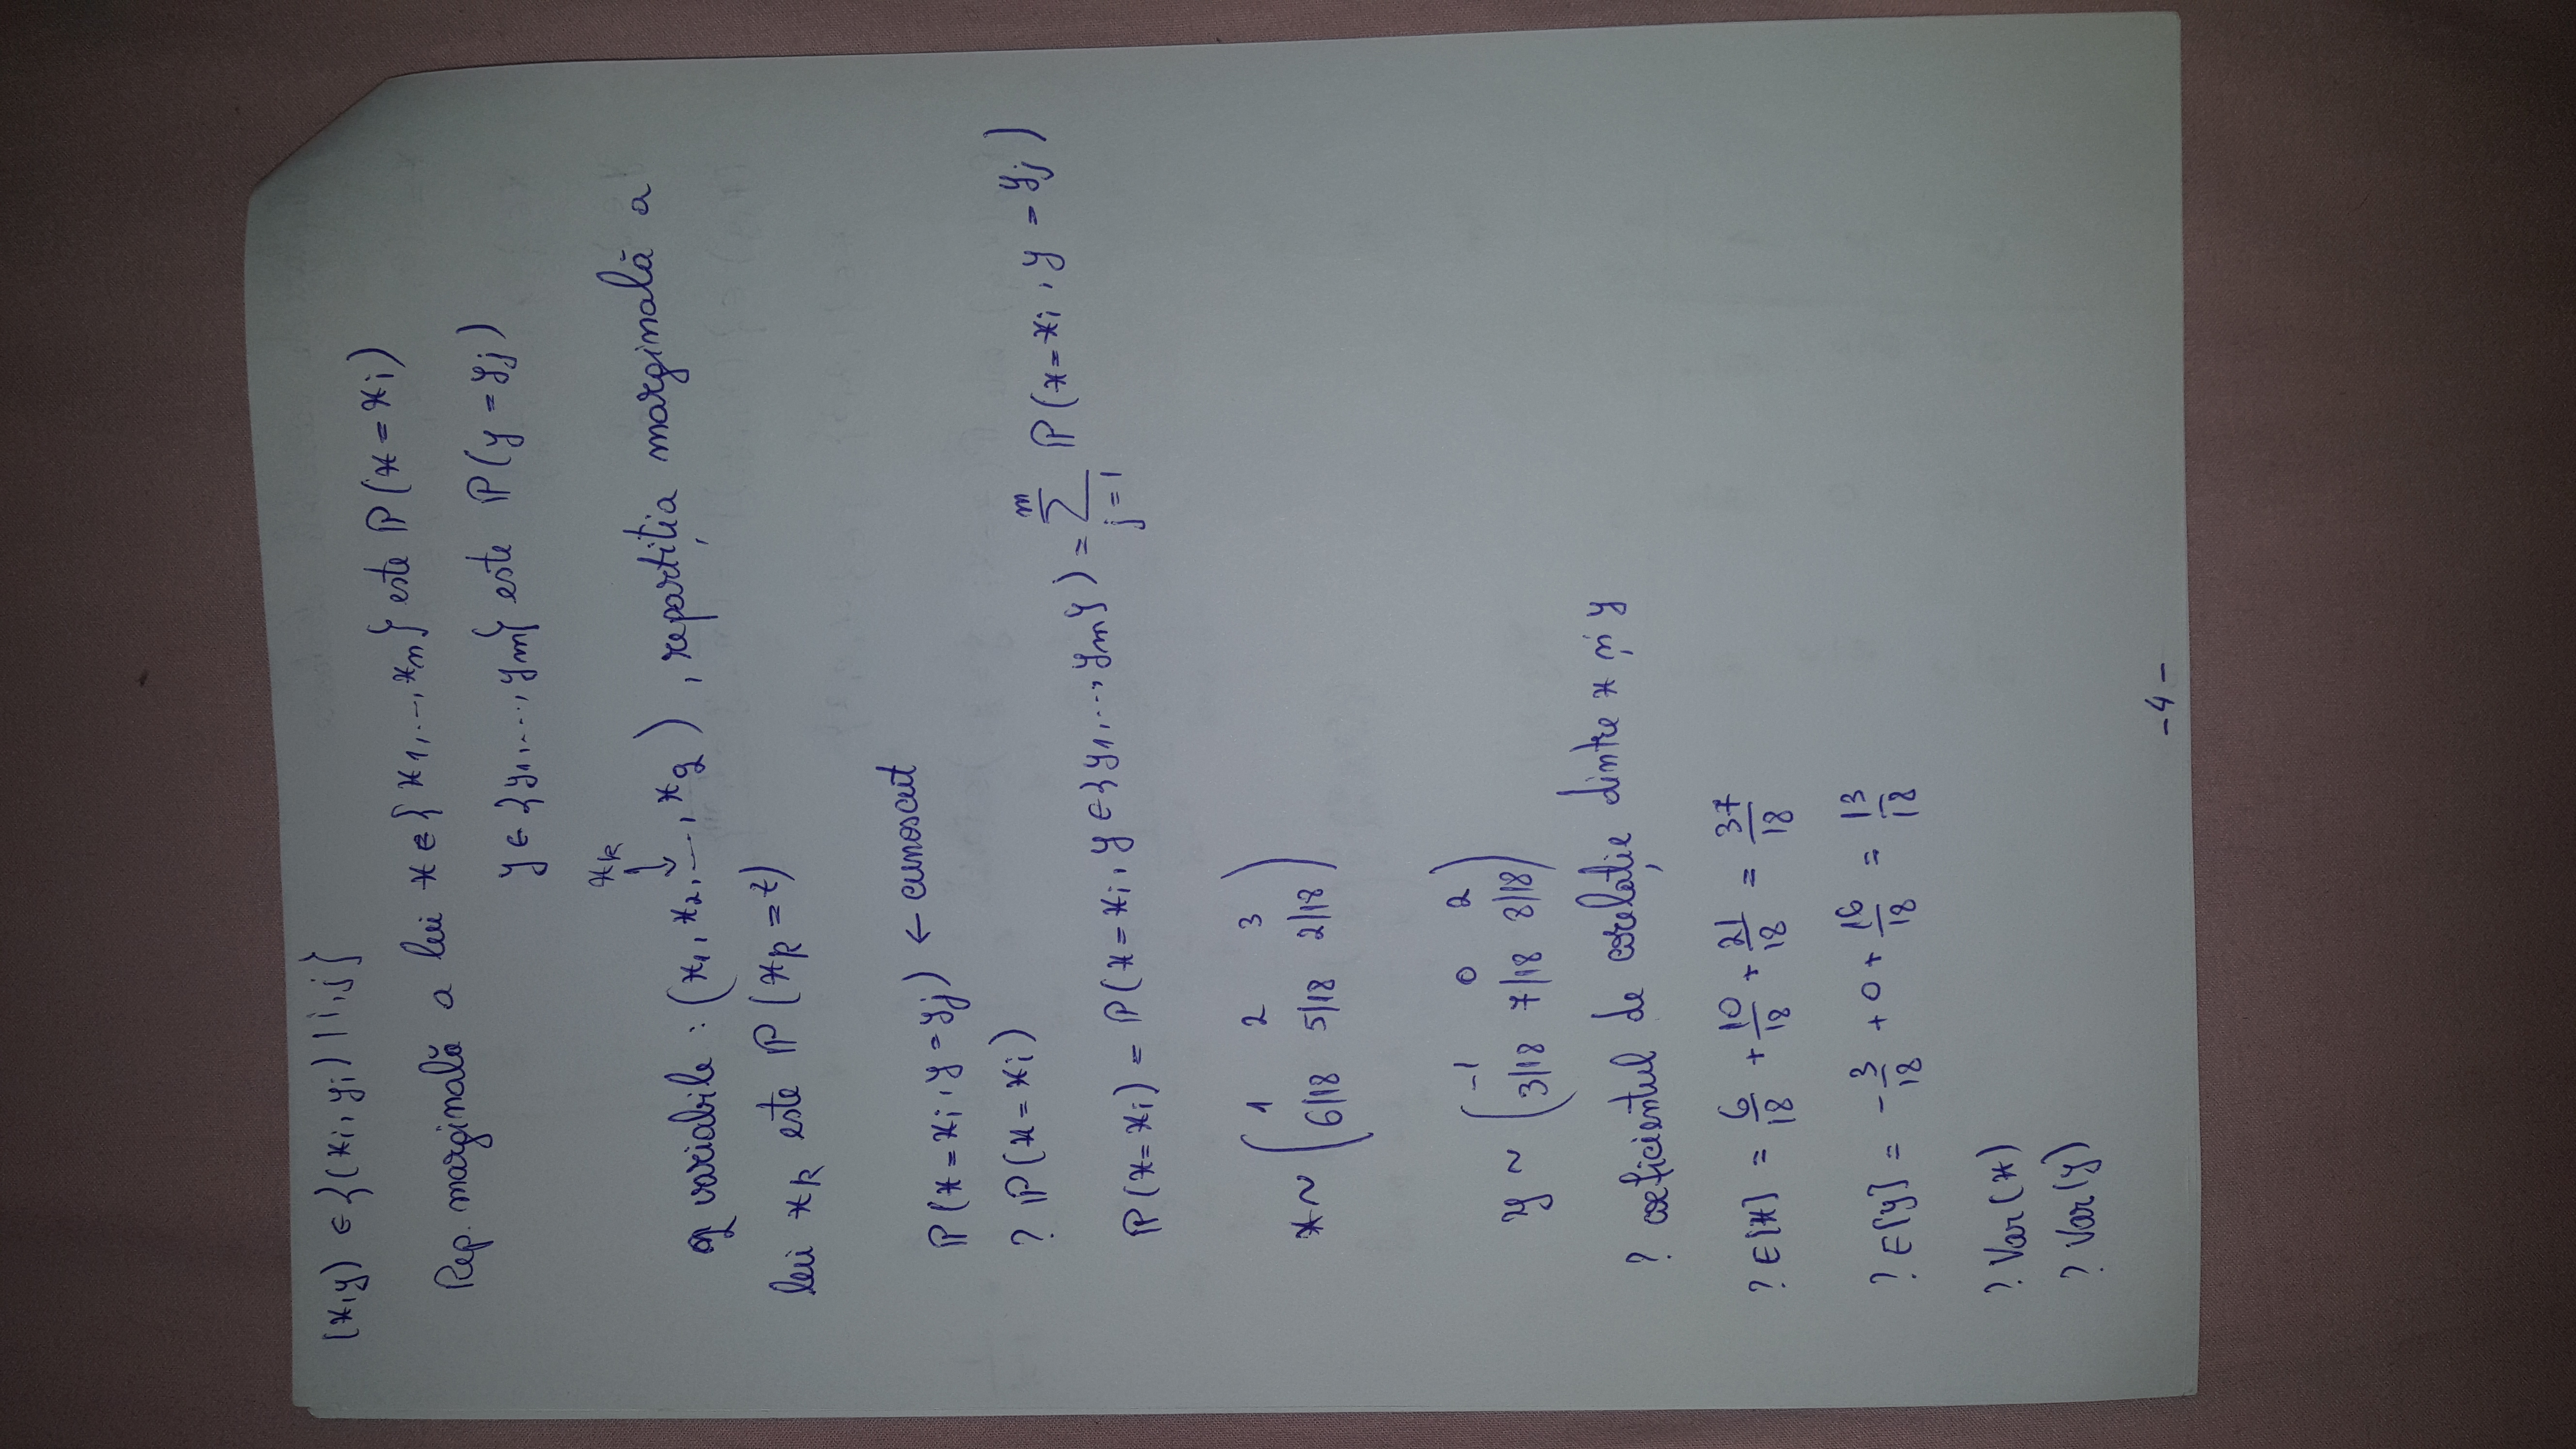 (x,y) ∈ {(xi, yi) | i,j}
Rep. marginală a lui x ∈ {x1,...,xn} este P(x = xi)
y ∈ {y1,...., ym} este P(y = yj)
xk
↓
q variabile : (x1, x2, ..., xq), repartiția marginală a
lui xk este P(xk = z)
P(x = xi, y = yj) ← cunoscut
? P(x = xi)
P(x = xi) = P(x = xi, y ∈ {y1,..., ym}) = ∑_{j=1}^{m} P(x = xi, y = yj)
x ~ (1 2 3
6/18 5/18 2/18)
y ~ (-1 0 2
3/18 7/18 8/18)
? coeficientul de corelație dintre x și y
? E[x] = 6/18 + 10/18 + 21/18 = 37/18
? E[y] = -3/18 + 0 + 16/18 = 13/18
? Var(x)
? Var(y)
- 4 -